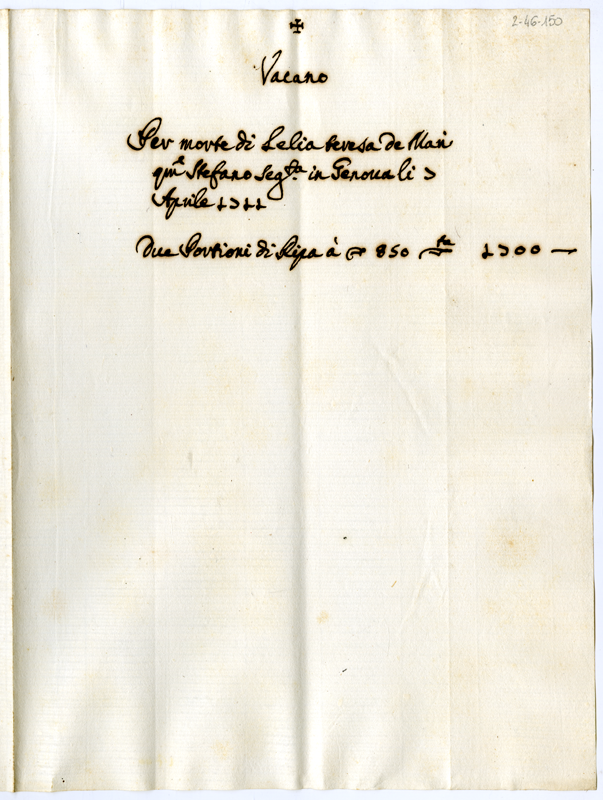 2-46-150
✠
Vacano
Per morte di Lelia teresa de Mari
qm̃ Stefano seg.ta in Genoua li 3
Aprile 1711
Due Portioni di Ripa à 850 1700 —